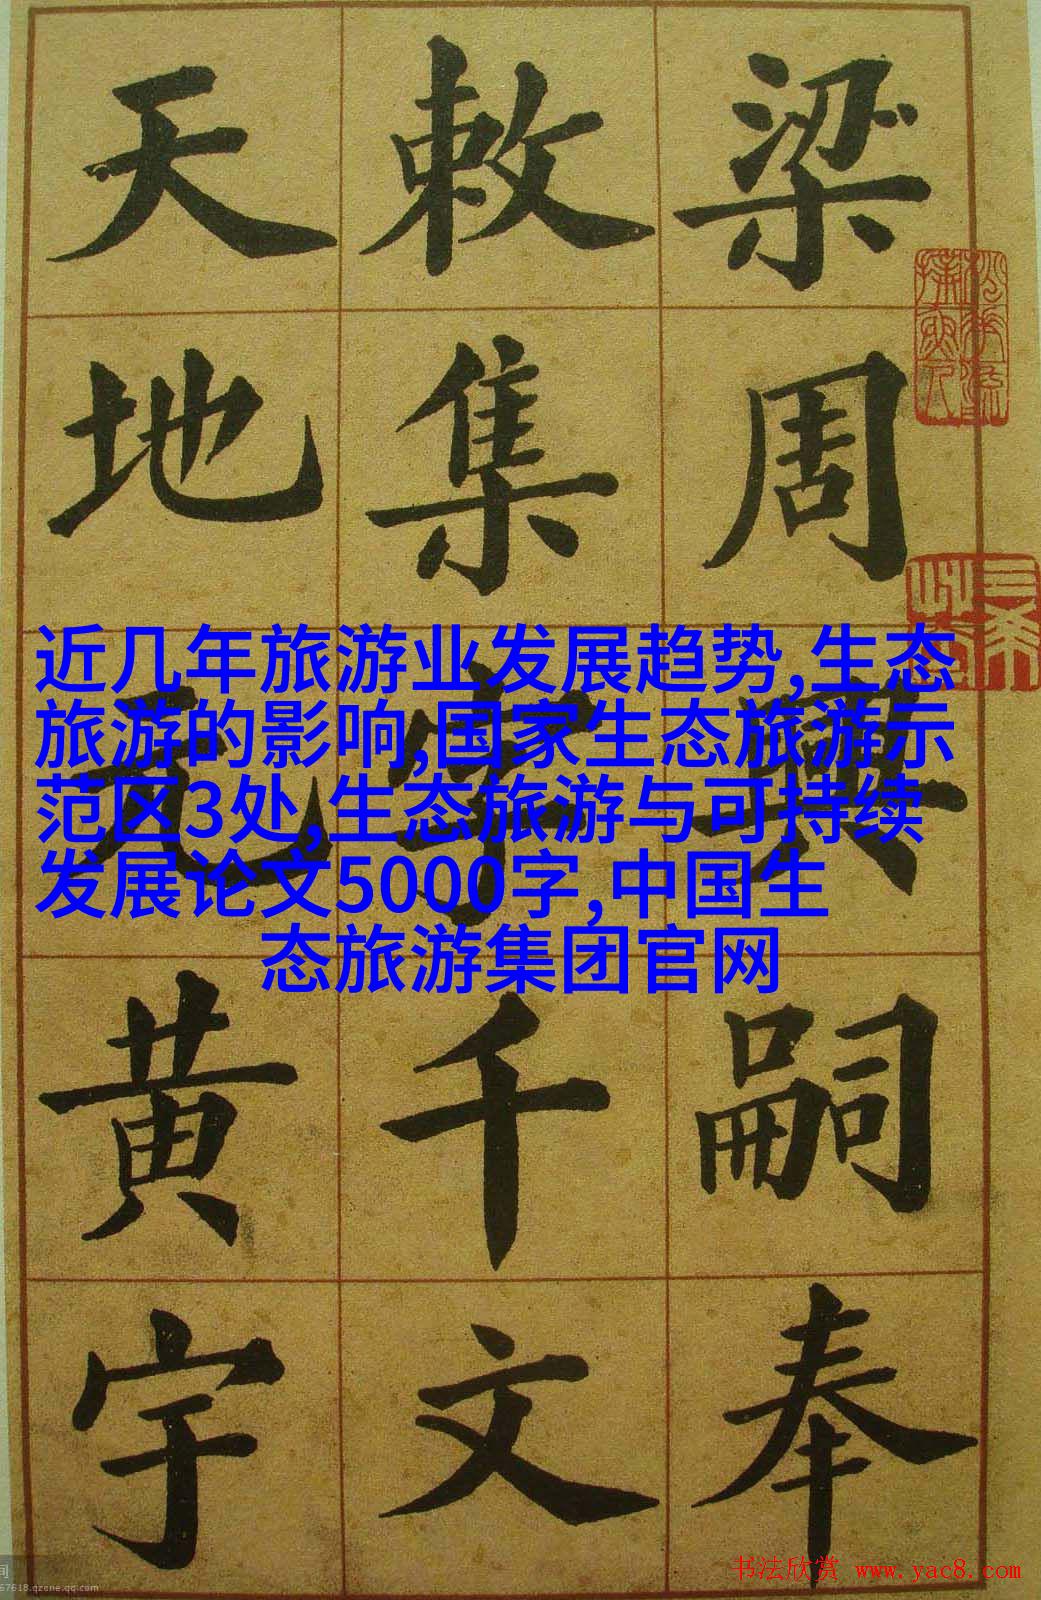 梁周興嗣奉
敕集字千文
天地元黄宇
近几年旅游业发展趋势,生态
旅游的影响,国家生态旅游示
范区3处,生态旅游与可持续
发展论文5000字,中国生
态旅游集团官网
书法欣赏 www.yac8.com
间
67618.qzone.qq.com